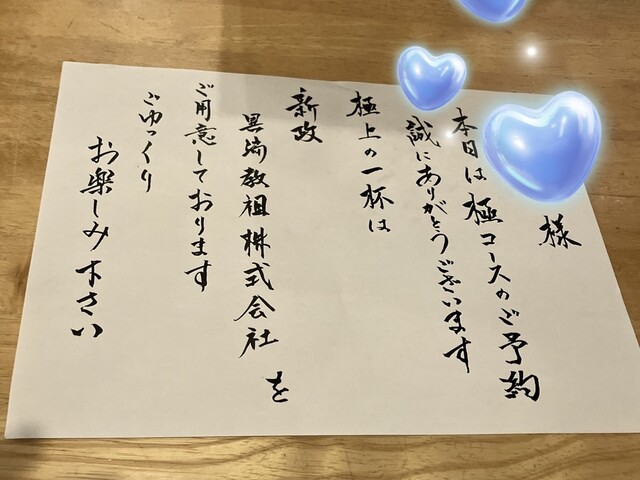 様
本日は極コースのご予約
誠にありがとうございます
極上の一杯は
新政
異端教祖株式会社を
ご用意しております
ごゆっくり
お楽しみ下さい